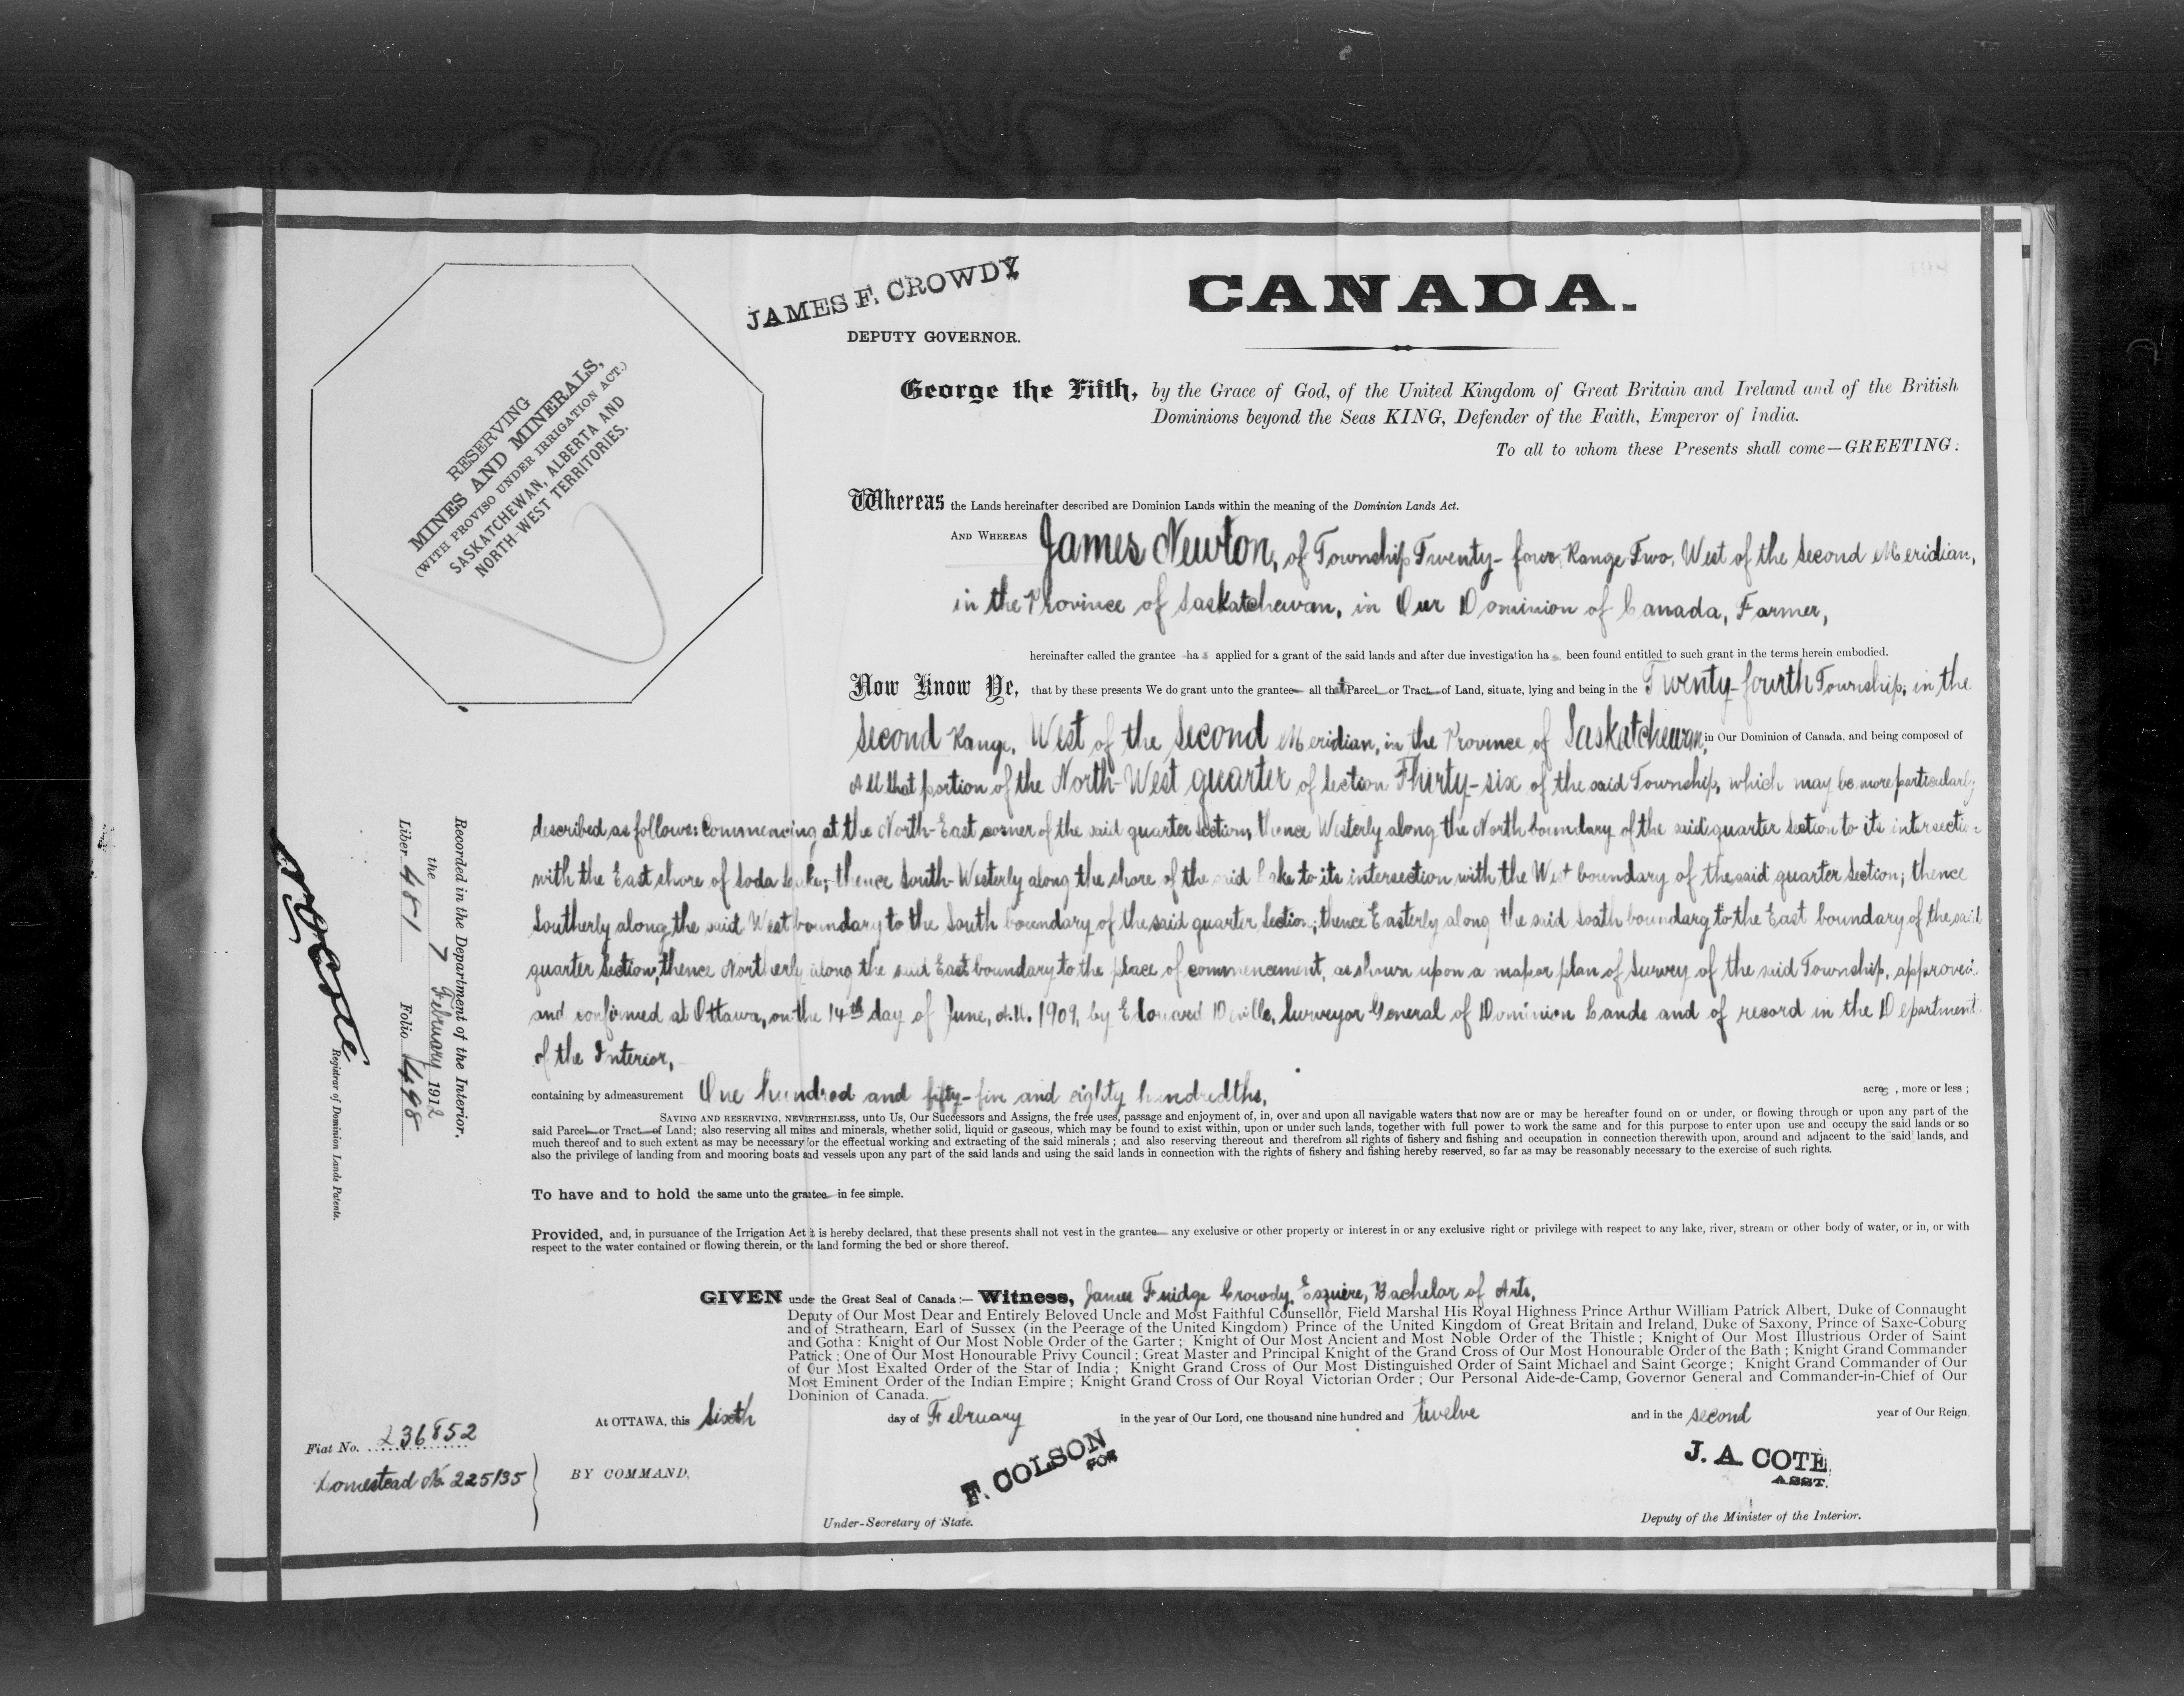 JAMES F. CROWDY
DEPUTY GOVERNOR.
CANADA.
RESERVING
MINES AND MINERALS,
(WITH PROVISO UNDER IRRIGATION ACT.)
SASKATCHEWAN, ALBERTA AND
NORTH-WEST TERRITORIES.
George the Fifth, by the Grace of God, of the United Kingdom of Great Britain and Ireland and of the British
Dominions beyond the Seas KING, Defender of the Faith, Emperor of India.
To all to whom these Presents shall come—GREETING:
Whereas the Lands hereinafter described are Dominion Lands within the meaning of the Dominion Lands Act.
AND WHEREAS James Newton, of Township Twenty-four, Range Two, West of the Second Meridian,
in the Province of Saskatchewan, in Our Dominion of Canada, Farmer,
hereinafter called the grantee has applied for a grant of the said lands and after due investigation has been found entitled to such grant in the terms herein embodied.
Now Know Ye, that by these presents We do grant unto the grantee all that Parcel or Tract of Land, situate, lying and being in the Twenty-fourth Township, in the
Second Range, West of the Second Meridian, in the Province of Saskatchewan, in Our Dominion of Canada, and being composed of
All that portion of the North-West quarter of Section Thirty-six of the said Township, which may be more particularly
described as follows: Commencing at the North-East corner of the said quarter Section, thence Westerly along the North boundary of the said quarter Section to its intersection
with the East shore of Soda Lake; thence South-Westerly along the shore of the said Lake to its intersection with the West boundary of the said quarter Section; thence
Southerly along the said West boundary to the South boundary of the said quarter Section; thence Easterly along the said South boundary to the East boundary of the said
quarter Section, thence Northerly along the said East boundary to the place of commencement, as shown upon a map or plan of Survey of the said Township, approved
and confirmed at Ottawa, on the 14th day of June, A.D. 1909, by Edouard Deville, Surveyor General of Dominion Lands and of record in the Department
of the Interior,
containing by admeasurement One hundred and fifty-five and eighty hundredths, acres, more or less;
SAVING AND RESERVING, NEVERTHELESS, unto Us, Our Successors and Assigns, the free uses, passage and enjoyment of, in, over and upon all navigable waters that now are or may be hereafter found on or under, or flowing through or upon any part of the
said Parcel or Tract of Land; also reserving all mines and minerals, whether solid, liquid or gaseous, which may be found to exist within, upon or under such lands, together with full power to work the same and for this purpose to enter upon use and occupy the said lands or so
much thereof and to such extent as may be necessary for the effectual working and extracting of the said minerals; and also reserving thereout and therefrom all rights of fishery and fishing and occupation in connection therewith upon, around and adjacent to the said lands, and
also the privilege of landing from and mooring boats and vessels upon any part of the said lands and using the said lands in connection with the rights of fishery and fishing hereby reserved, so far as may be reasonably necessary to the exercise of such rights.
To have and to hold the same unto the grantee in fee simple.
Provided, and, in pursuance of the Irrigation Act it is hereby declared, that these presents shall not vest in the grantee any exclusive or other property or interest in or any exclusive right or privilege with respect to any lake, river, stream or other body of water, or in, or with
respect to the water contained or flowing therein, or the land forming the bed or shore thereof.
GIVEN under the Great Seal of Canada:— Witness, James Fuidge Crowdy, Esquire, Bachelor of Arts,
Deputy of Our Most Dear and Entirely Beloved Uncle and Most Faithful Counsellor, Field Marshal His Royal Highness Prince Arthur William Patrick Albert, Duke of Connaught
and of Strathearn, Earl of Sussex (in the Peerage of the United Kingdom) Prince of the United Kingdom of Great Britain and Ireland, Duke of Saxony, Prince of Saxe-Coburg
and Gotha: Knight of Our Most Noble Order of the Garter; Knight of Our Most Ancient and Most Noble Order of the Thistle; Knight of Our Most Illustrious Order of Saint
Patrick; One of Our Most Honourable Privy Council; Great Master and Principal Knight of the Grand Cross of Our Most Honourable Order of the Bath; Knight Grand Commander
of Our Most Exalted Order of the Star of India; Knight Grand Cross of Our Most Distinguished Order of Saint Michael and Saint George; Knight Grand Commander of Our
Most Eminent Order of the Indian Empire; Knight Grand Cross of Our Royal Victorian Order; Our Personal Aide-de-Camp, Governor General and Commander-in-Chief of Our
Dominion of Canada.
At OTTAWA, this Sixth day of February in the year of Our Lord, one thousand nine hundred and twelve and in the second year of Our Reign.
BY COMMAND,
F. COLSON
FOR
Under-Secretary of State.
J. A. COTE
ASST.
Deputy of the Minister of the Interior.
Fiat No. 236852
Homestead No. 225135
Recorded in the Department of the Interior.
the 7 February 1912
Liber 481 Folio 498
N O Coste
Registrar of Dominion Lands Patents.